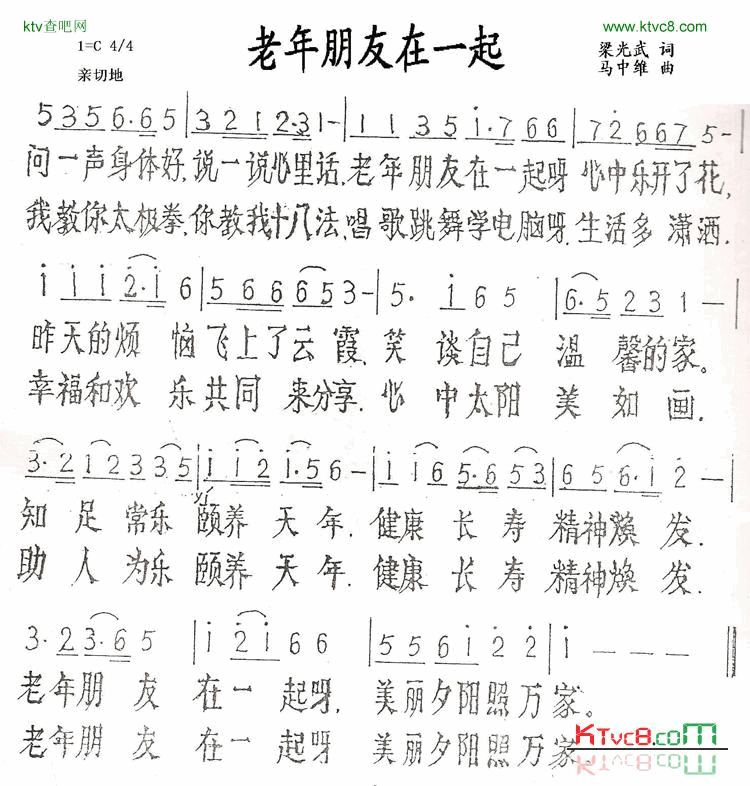 ktv查吧网
www.ktvc8.com
1=C 4/4
老年朋友在一起
梁光武 词
亲切地
马中雒 曲
5 3 5 6·6 5 | 3 2 1 2·3 1 - | 1 1 3 5 i·7 6 6 | 7 2 6 6 7 5 -
问一声身体好,说一说心里话.老年朋友在一起呀 心中乐开了花,
我教你太极拳,你教我十八法,唱歌跳舞学电脑呀.生活多 潇洒.
i i i 2·i 6 | 5 6 6 6 5 3 - | 5· i 6 5 | 6·5 2 3 1 —
昨天的烦 恼飞上了云霞.笑 谈自己 温 馨的家。
幸福和欢 乐共同 来分享.心 中太阳 美 如 画.
3·2 1 2 3 3 5 | i i 2 i·5 6 - | i i 6 5·6 5 3 | 5 6 5 6·i 2 —
yi
知 足 常乐 颐养 天 年.健康 长 寿 精神焕 发.
助 人 为乐 颐养 天 年.健康 长 寿 精神焕 发.
3·2 3·6 5 | i 2 i 6 6 | 5 5 6 i 2 2 | i — — —
老年朋 友 在 一 起呀, 美丽夕阳照万家。
老年朋 友 在 一 起呀 美丽夕阳照万家.
KTvc8.com